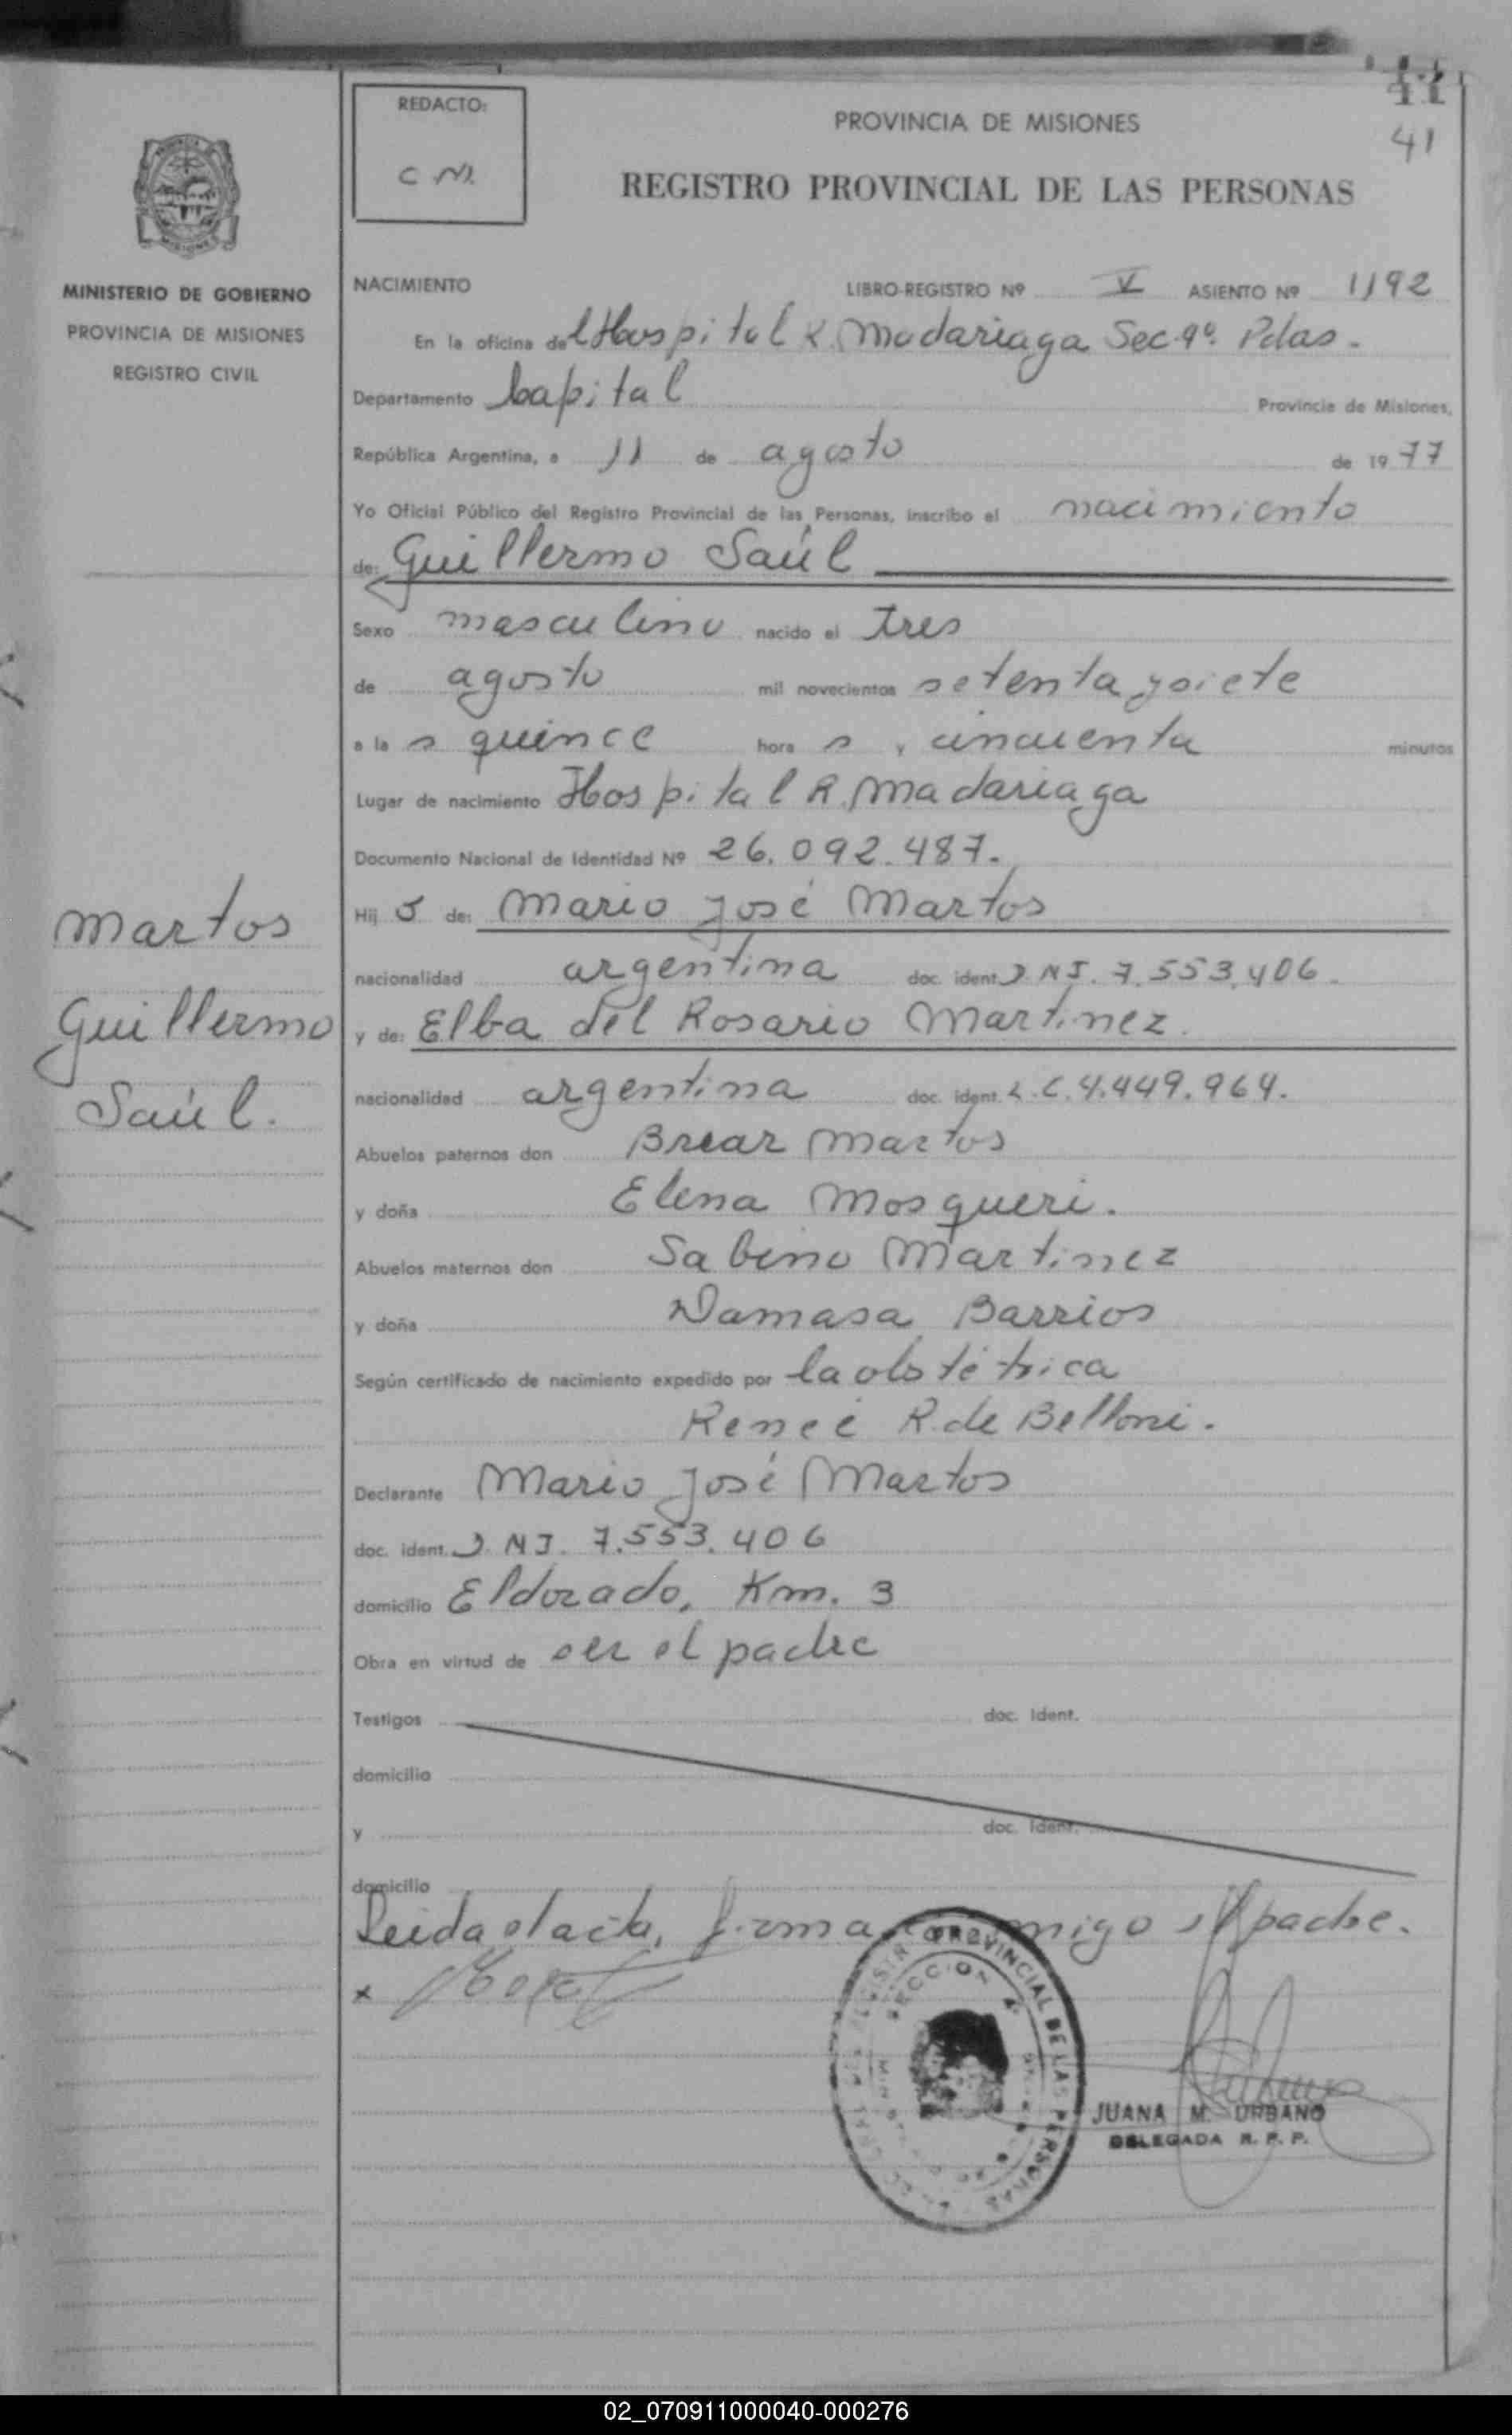 41
41
REDACTO:
C M.
PROVINCIA DE MISIONES
REGISTRO PROVINCIAL DE LAS PERSONAS
MINISTERIO DE GOBIERNO
PROVINCIA DE MISIONES
REGISTRO CIVIL
NACIMIENTO LIBRO-REGISTRO Nº V ASIENTO Nº 1192
En la oficina del Hospital R. Madariaga Sec. 9º Pdas.
Departamento Capital Provincia de Misiones,
República Argentina, a 11 de agosto de 1977
Yo Oficial Público del Registro Provincial de las Personas, inscribo el nacimiento
de: Guillermo Saúl
Sexo masculino nacido el tres
de agosto mil novecientos setenta y siete
a las quince horas y cincuenta minutos
Lugar de nacimiento Hospital R. Madariaga
Documento Nacional de Identidad Nº 26.092.487.
Hijo de: Mario José Martos
nacionalidad argentina doc. ident. D.N.I. 7.553.406.
y de: Elba del Rosario Martinez.
nacionalidad argentina doc. ident. L.C. 4.449.964.
Abuelos paternos don Brear Martos
y doña Elena Mosqueri.
Abuelos maternos don Sabino Martinez
y doña Damasa Barrios
Según certificado de nacimiento expedido por la obstétrica
Reneé R. de Belloni.
Declarante Mario José Martos
doc. ident. D.N.I. 7.553.406
domicilio Eldorado, Km. 3
Obra en virtud de ser el padre
Testigos doc. ident.
domicilio
y doc. ident.
domicilio
Leida el acta, firma conmigo el padre.
Martos
Guillermo
Saúl.
PROVINCIAL DE LAS PERSONAS
SECCION
JUANA M. URBANO
DELEGADA R. P. P.
02_070911000040-000276